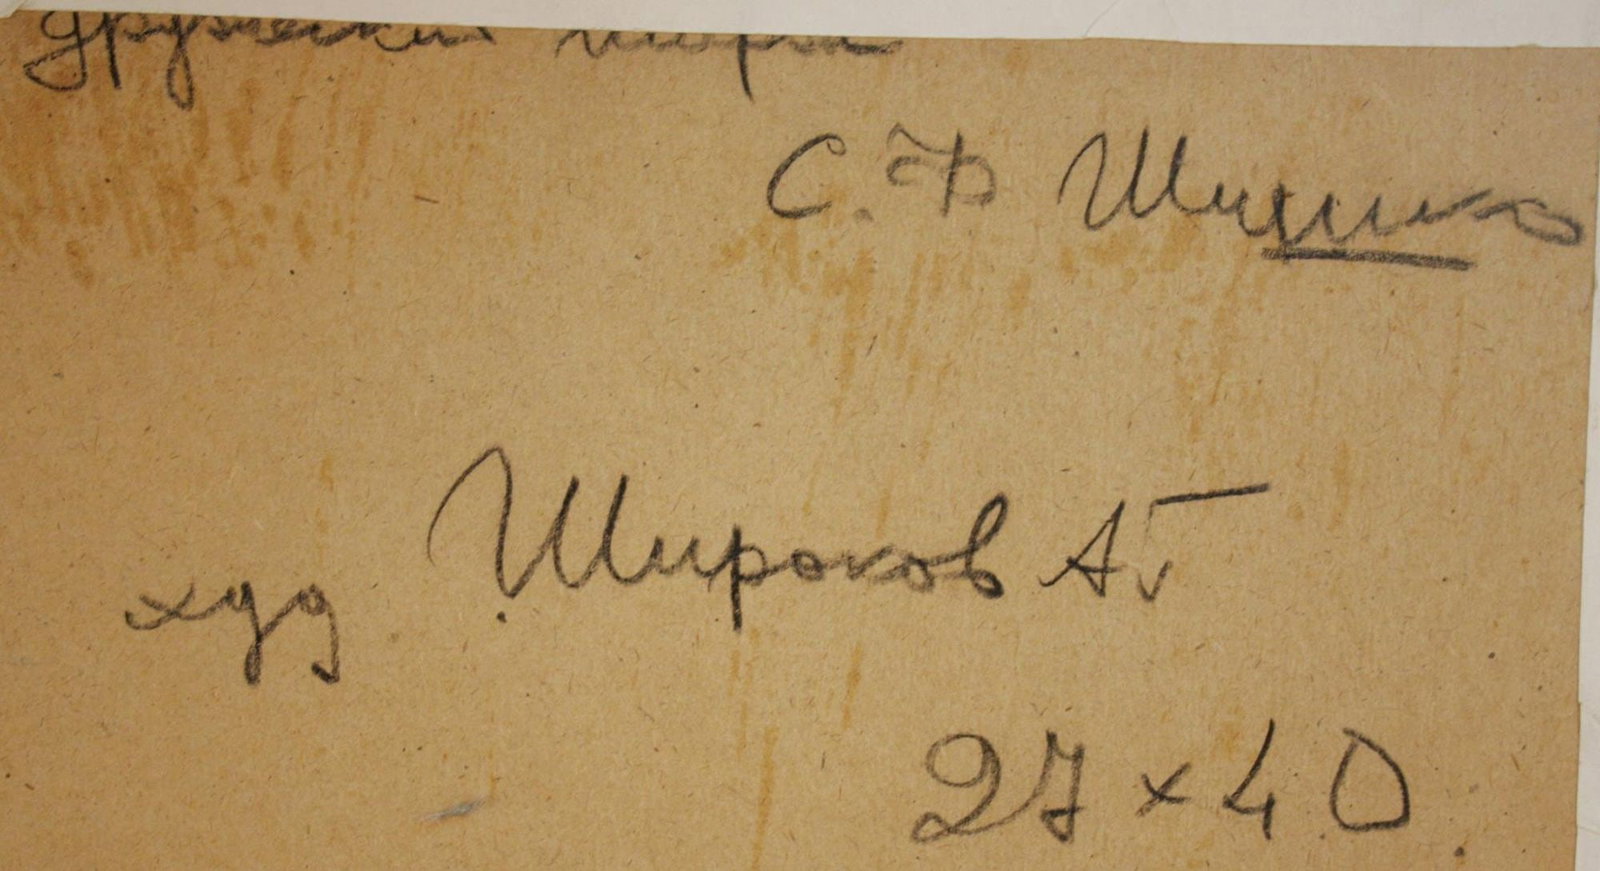 дружеский шарж
С. Ф Шишко
худ Широков АГ
27 × 40